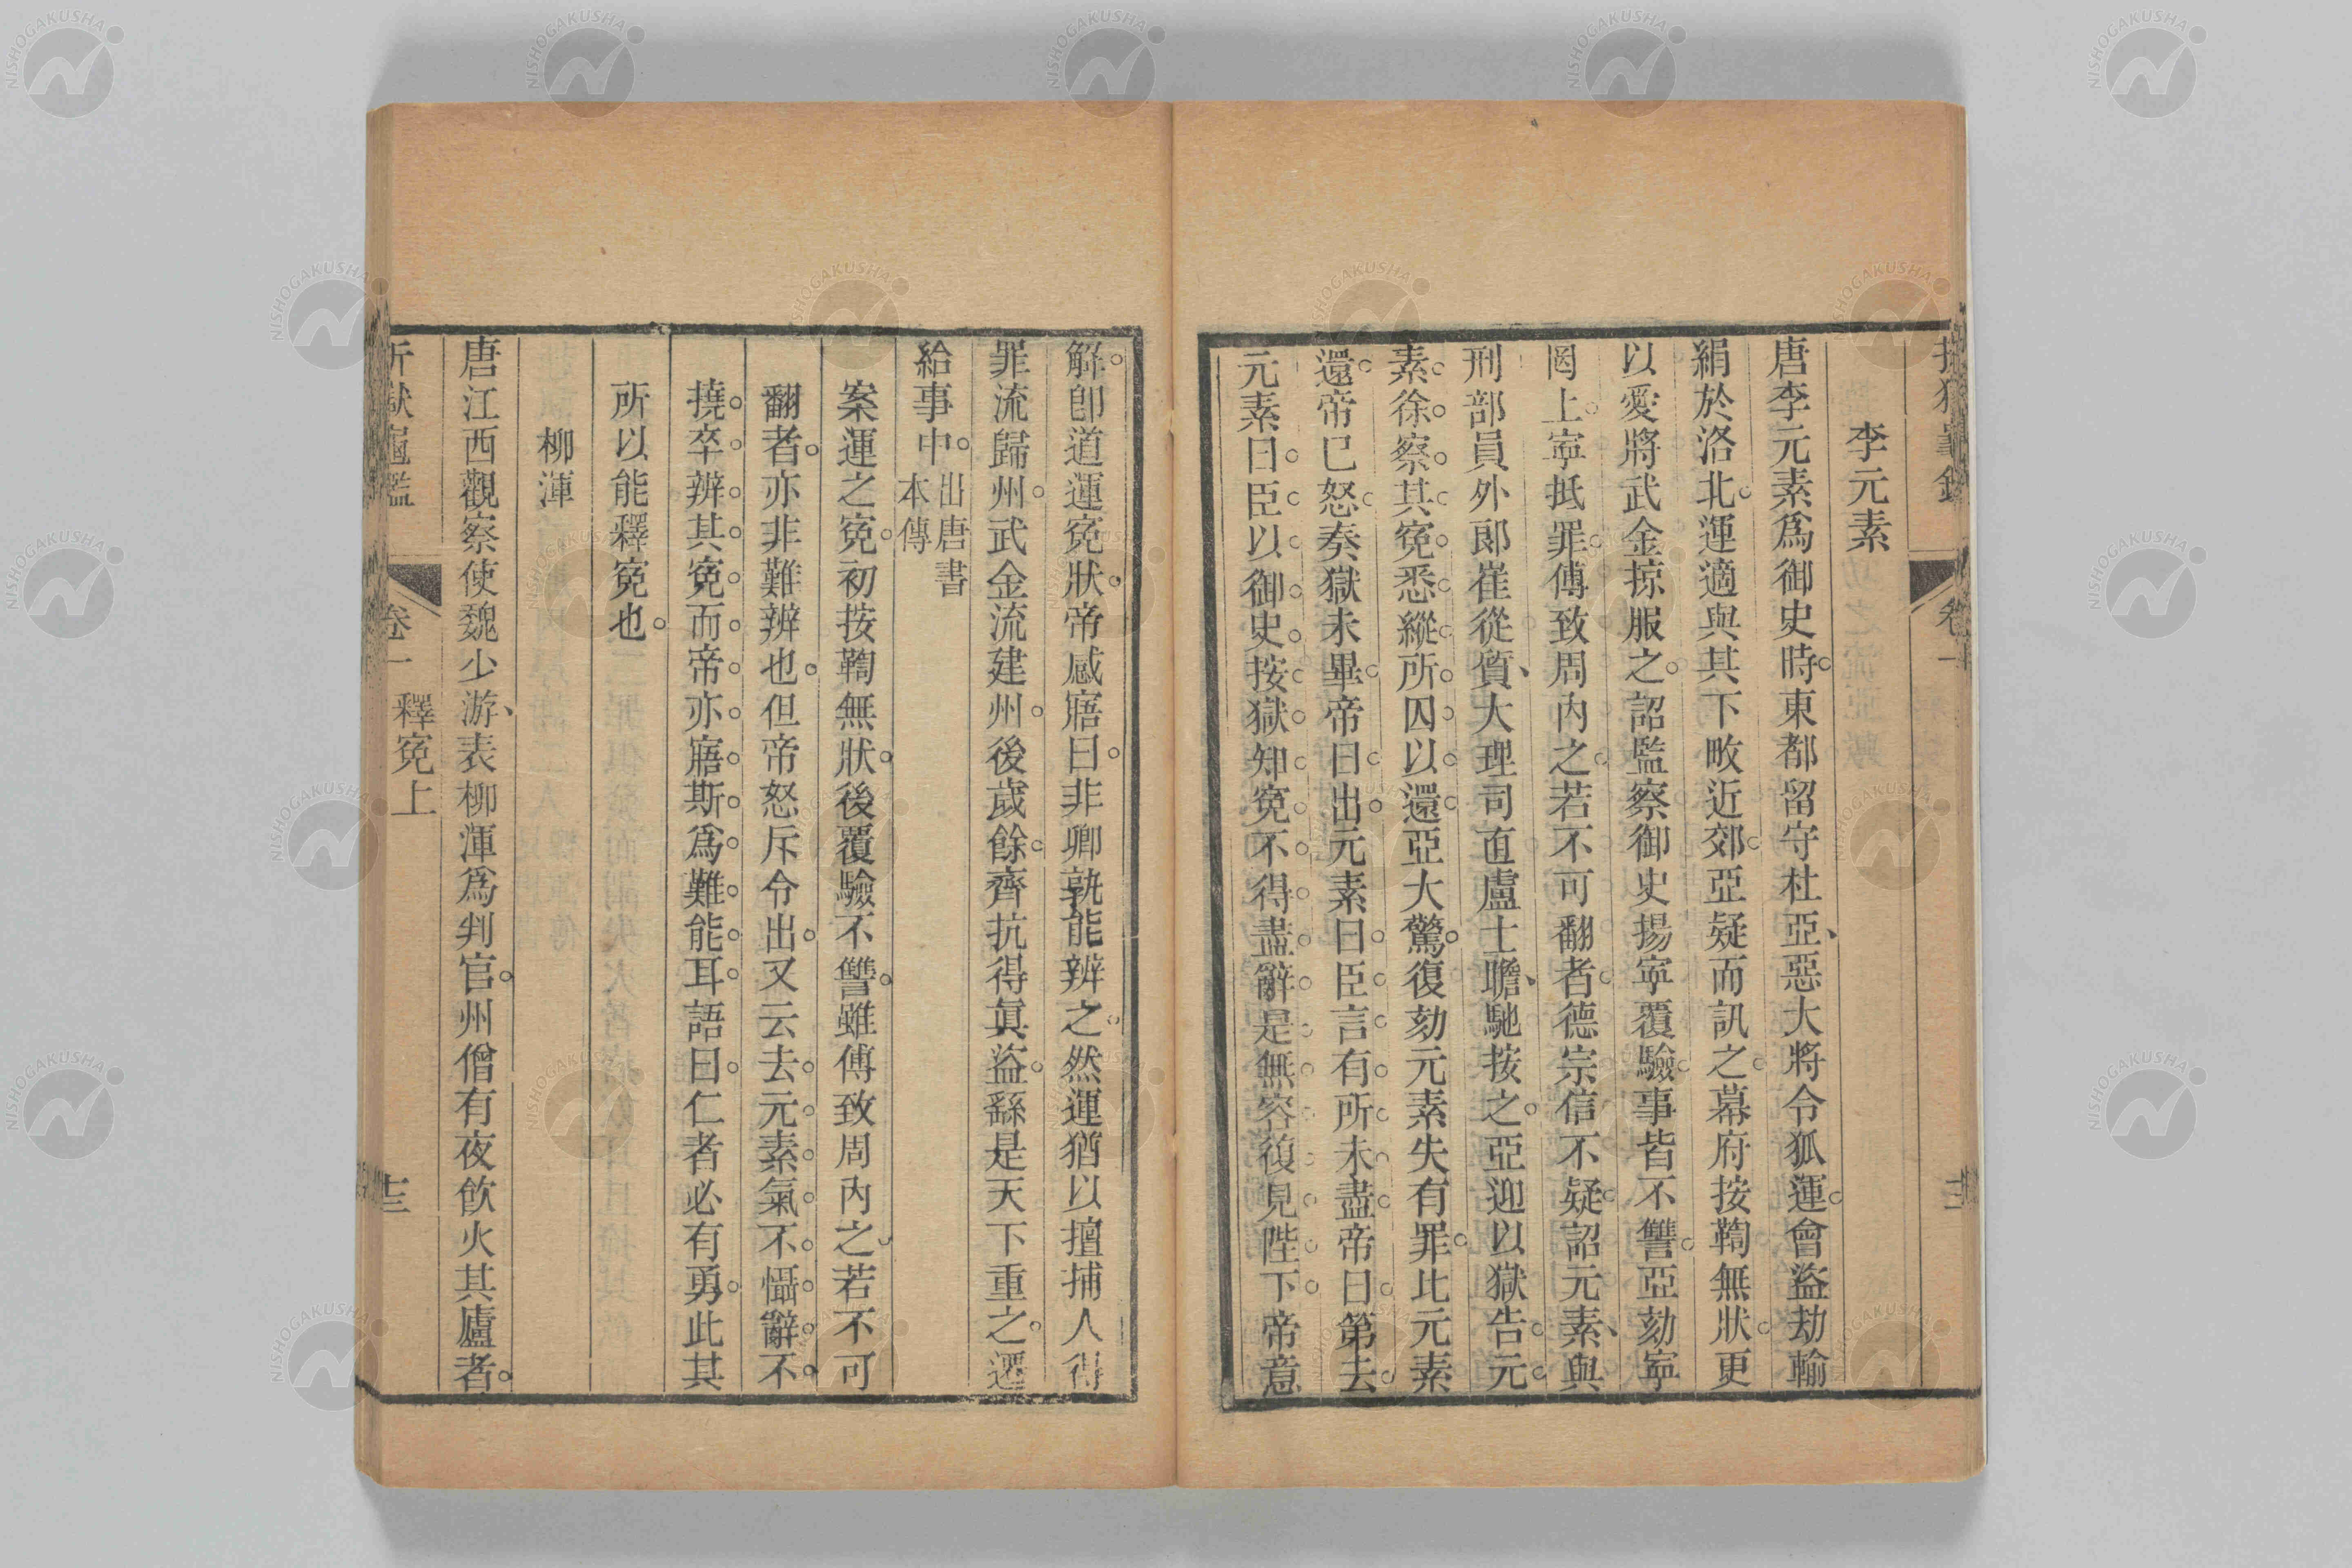 李元素
唐李元素爲御史時東都留守杜亞惡大將令狐運會盜劫輸
絹於洛北運適與其下畋近郊亞疑而訊之幕府按鞫無狀更
以愛將武金掠服之詔監察御史揚寧覆驗事皆不讐亞劾寧
罔上寧抵罪傅致周内之若不可翻者德宗信不疑詔元素與
刑部員外郎崔從質大理司直盧士瞻馳按之亞迎以獄告元
素徐察其寃悉縱所囚以還亞大驚復劾元素失有罪比元素
還帝已怒奏獄未畢帝曰出元素曰臣言有所未盡帝曰第去
元素曰臣以御史按獄知寃不得盡辭是無容復見陛下帝意
解卽道運寃狀帝感寤曰非卿孰能辨之然運猶以擅捕人得
罪流歸州武金流建州後歲餘齊抗得眞盜繇是天下重之遷
給事中 出唐書本傳
案運之寃初按鞫無狀後覆驗不讐雖傅致周内之若不可
翻者亦非難辨也但帝怒斥令出又云去元素氣不懾辭不
撓卒辨其寃而帝亦寤斯爲難能耳語曰仁者必有勇此其
所以能釋寃也
柳渾
唐江西觀察使魏少游表柳渾爲判官州僧有夜飲火其廬者
折獄龜鑑 卷一 釋寃上 十三
NISHOGAKUSHA